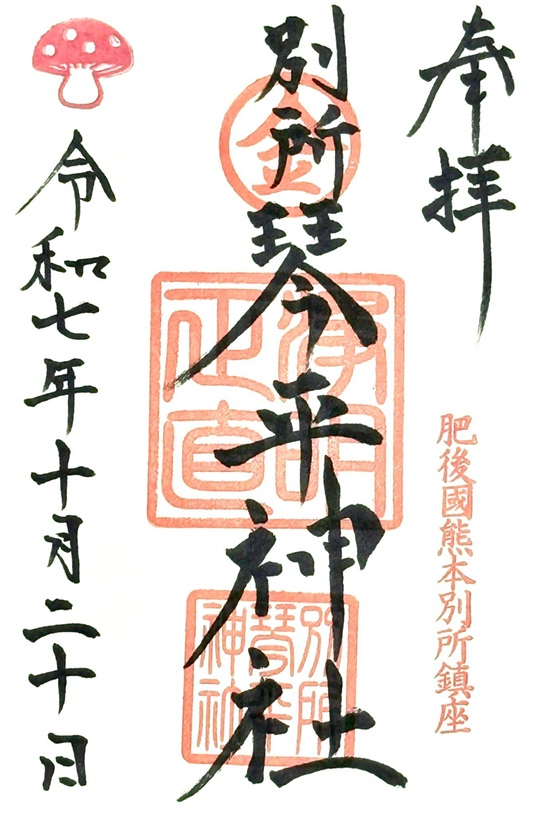 奉拝
肥後國熊本別所鎮座
別所琴平神社
金
浄明正直
別所琴平神社
令和七年十月二十日